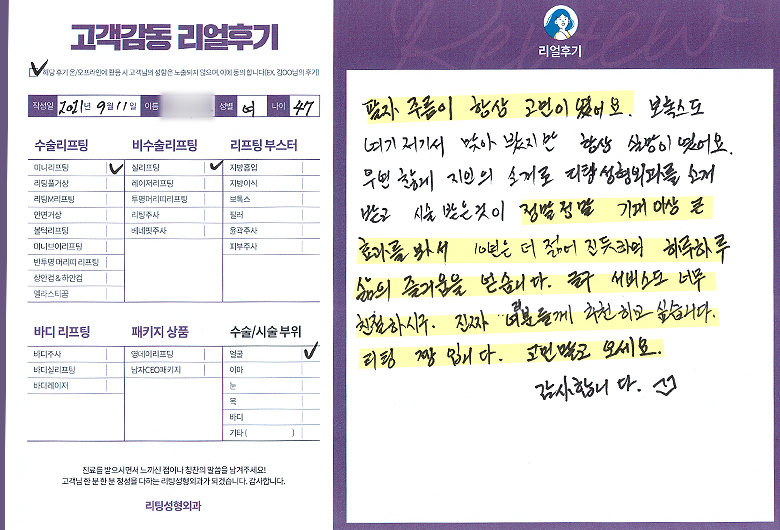 고객감동 리얼후기
해당 후기 온/오프라인에 활용 시 고객님의 성함은 노출되지 않으며, 이에 동의 합니다(EX. 김OO님의 후기)
작성일 2021년 9월 11일 이름 성별 여 나이 47
수술리프팅 비수술리프팅 리프팅 부스터
미니리프팅 실리프팅 지방흡입
리팅풀거상 레이저리프팅 지방이식
리팅M리프팅 투명머리띠리프팅 보톡스
안면거상 리팅주사 필러
볼턱리프팅 베네핏주사 윤곽주사
미니브이리프팅 피부주사
반투명 머리띠 리프팅
상안검 & 하안검
엘라스티꿈
바디 리프팅 패키지 상품 수술/시술 부위
바디주사 원데이리프팅 얼굴
바디실리프팅 남자CEO패키지 이마
바디레이저 눈
목
바디
기타 ( )
진료를 받으시면서 느끼신 점이나 칭찬의 말씀을 남겨주세요!
고객님 한 분 한 분 정성을 다하는 리팅성형외과가 되겠습니다. 감사합니다.
리팅성형외과
Review
리얼후기
팔자 주름이 항상 고민이 였어요. 보톡스도
여기저기서 맞아 봤지만 항상 실망이 였어요.
우연찮게 지인의 소개로 리팅성형외과를 소개
받고 시술 받은것이 정말정말 기대이상 큰
효과를 봐서 10년은 더 젊어 진듯하며 하루하루
삶의 즐거움을 얻습니다. 글구 서비스도 너무
친절하시구. 진짜 여러분들께 추천하고 싶습니다.
리팅 짱 입니다. 고민말고 오세요.
감사합니다.